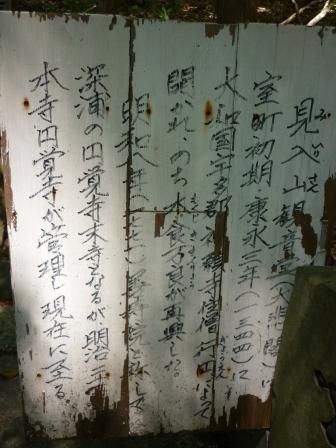 見入山観音堂(大悲閣)は
室町初期康永三年(一三四四)に
大和國宇多郡福龍寺僧行円によって
開かれ、のち木食万良が再興した。
明和八年(一七七一)野寺院と称して
深浦の円覚寺末寺となるが明治二年
本寺円覚寺が管理し現在に至る。